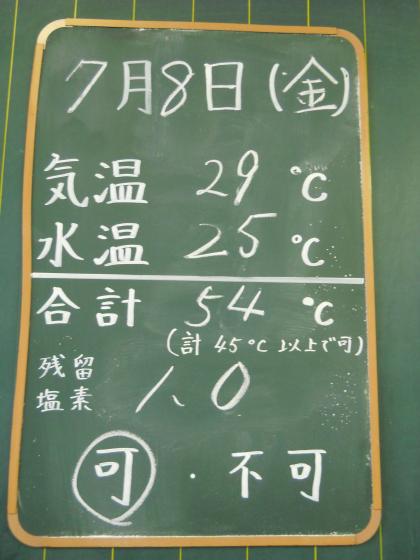 7月8日(金)
気温 29 ℃
水温 25 ℃
合計 54 ℃
(計 45℃ 以上で可)
残留
塩素 1.0
可・不可